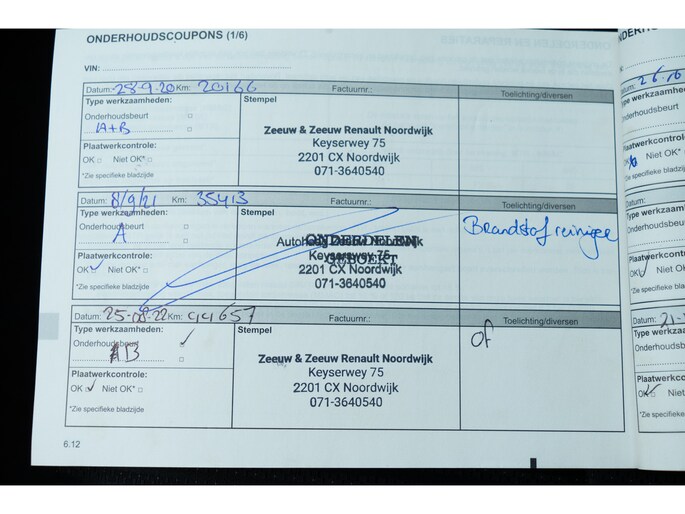 ONDERHOUDSCOUPONS (1/6)
VIN:
Datum: 28-9-20 Km: 20166 Factuurnr.: Toelichting/diversen
Type werkzaamheden: Stempel
Onderhoudsbeurt
A+B
Zeeuw & Zeeuw Renault Noordwijk
Keyserwey 75
2201 CX Noordwijk
071-3640540
Plaatwerkcontrole:
OK Niet OK*
*Zie specifieke bladzijde
Datum: 8/9/21 Km: 35413 Factuurnr.: Toelichting/diversen
Type werkzaamheden: Stempel
Onderhoudsbeurt
A
Brandstof reiniger
ONDERDELEN
GEBOEKT
Keyserwey 75
2201 CX Noordwijk
071-3640540
Plaatwerkcontrole:
OK Niet OK*
*Zie specifieke bladzijde
Datum: 25-08-22 Km: 44657 Factuurnr.: Toelichting/diversen
Type werkzaamheden: Stempel
Onderhoudsbeurt
AB
Zeeuw & Zeeuw Renault Noordwijk
Keyserwey 75
2201 CX Noordwijk
071-3640540
Plaatwerkcontrole:
OK Niet OK*
*Zie specifieke bladzijde
6.12
Datum:
OK Niet OK*
*Zie specifieke
Datum:
Onderhoudsbeurt
OK Niet OK*
*Zie specifieke
Datum: 21-
Onderhoudsbeu
OK Niet OK
*Zie specifieke